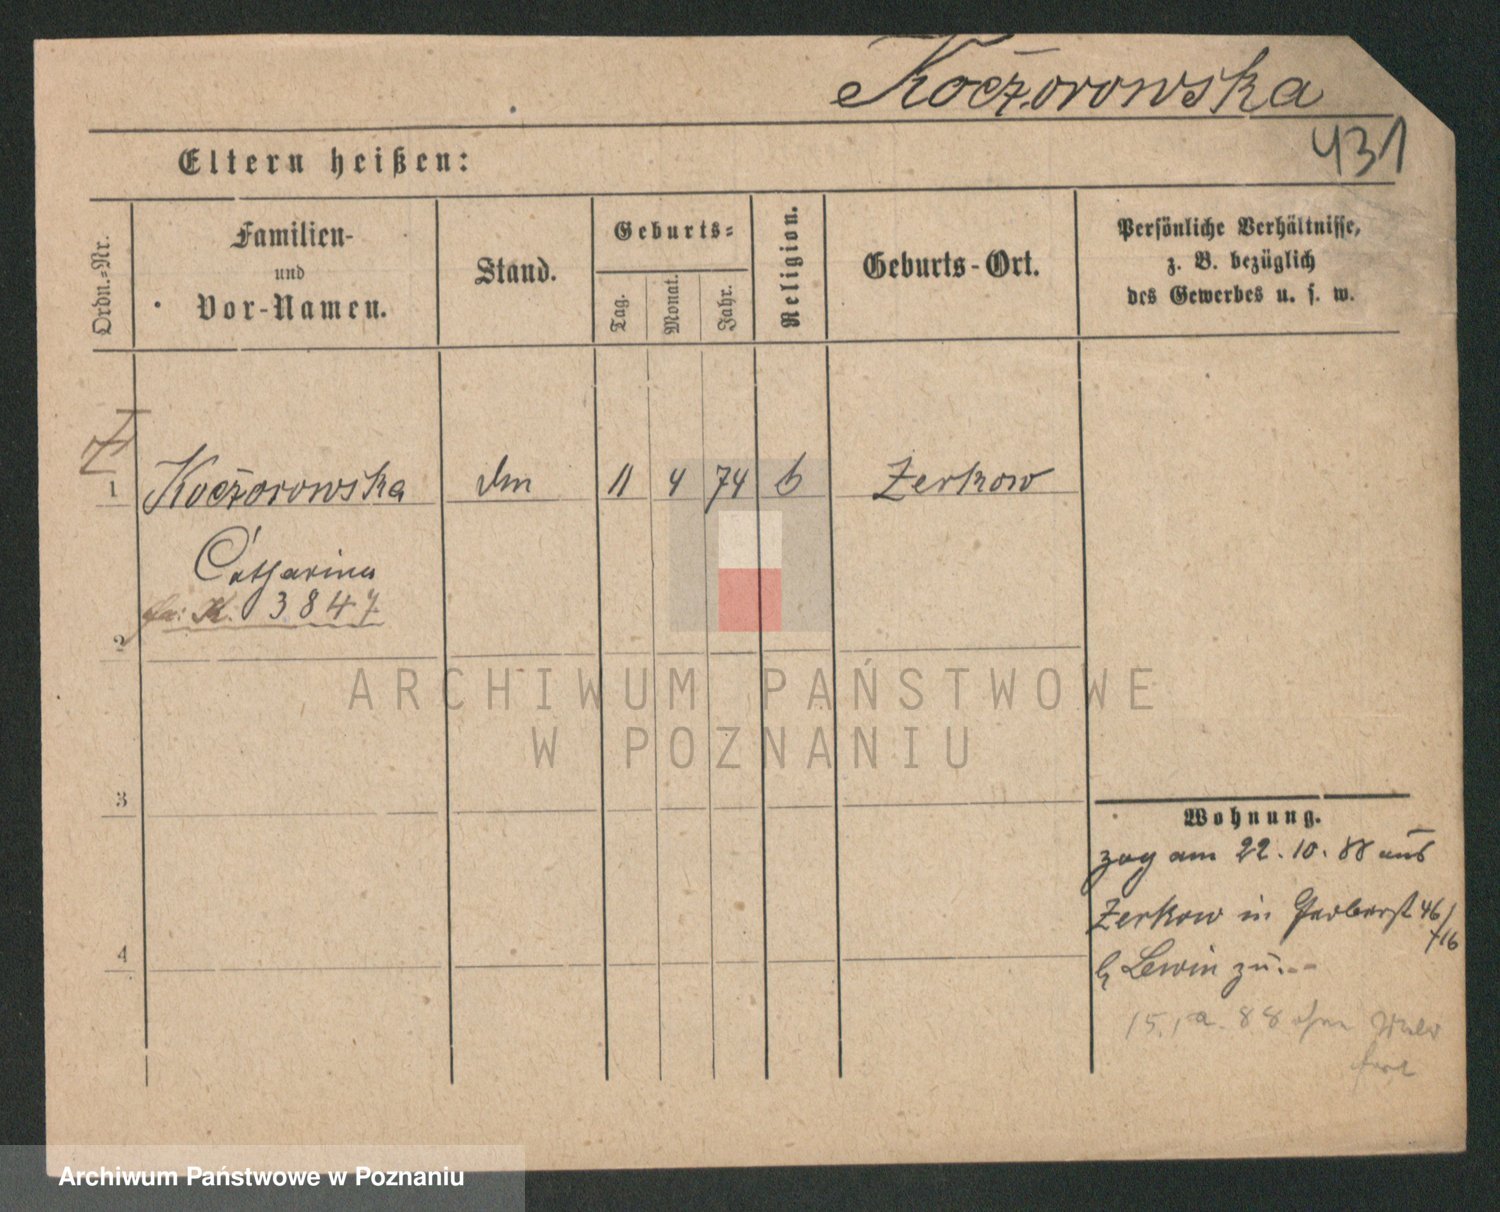 Koczorowska
431
Eltern heißen:
Ordn.-Nr.
Familien-
und
Vor-Namen.
Stand.
Geburts-
Tag.
Monat.
Jahr.
Religion.
Geburts-Ort.
Persönliche Verhältnisse,
z. B. bezüglich
des Gewerbes u. s. w.
1 Koczorowska 11 4 74 Zerkow
Catharina
3847
2
3
4
Wohnung.
zog am 22.10.88 aus
Zerkow in Gerberst 46/
16
Lewin zu.--
88 ohne
ARCHIWUM PAŃSTWOWE
W POZNANIU
Archiwum Państwowe w Poznaniu